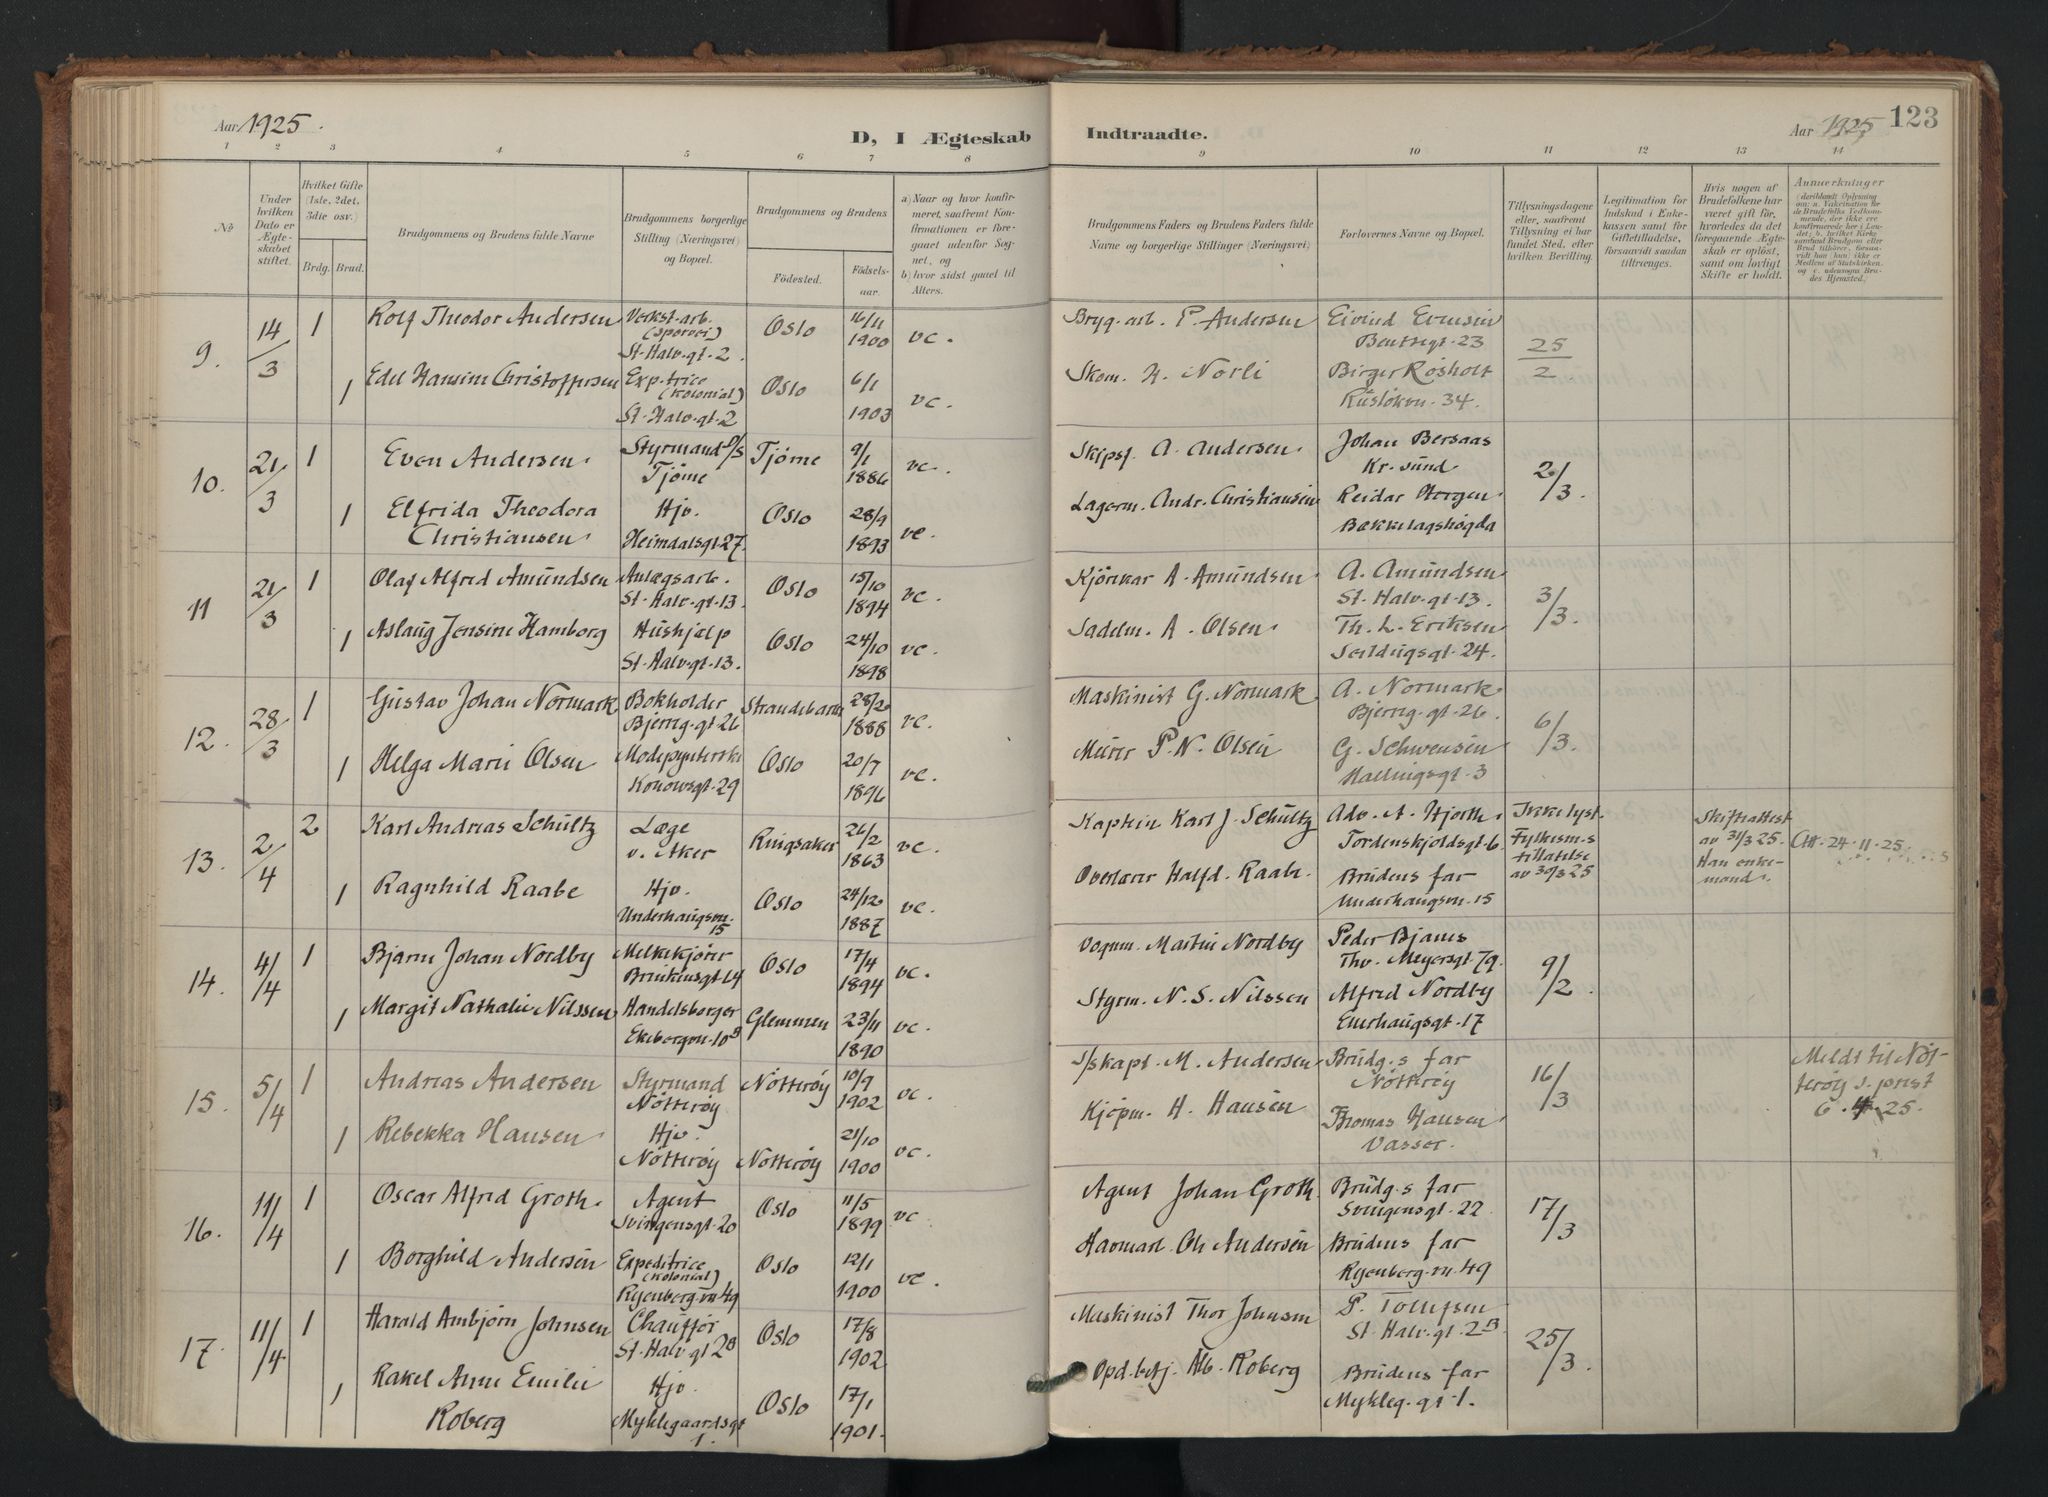 Aar 1925.
D, I Ægteskab Indtraadte.
Aar 1925
123
1 2 3 4 5 6 7 8 9 10 11 12 13 14
No
Under hvilken Dato er Ægteskabet stiftet.
Hvilket Gifte (1ste, 2det, 3die osv.)
Brdg. Brud.
Brudgommens og Brudens fulde Navne
Brudgommens borgerlige Stilling (Næringsvei) og Bopæl.
Brudgommens og Brudens
Fødested. Fødselsaar.
a) Naar og hvor konfirmeret, saafremt Konfirmationen er foregaaet udenfor Sognet, og
b) hvor sidst gaaet til Alters.
Brudgommens Faders og Brudens Faders fulde Navne og borgerlige Stillinger (Næringsvei)
Forlovernes Navne og Bopæl.
Tillysningsdagene eller, saafremt Tillysning ei har fundet Sted, efter hvilken Bevilling.
Legitimation for Indskud i Enkekassen samt for Giftetilladelse, forsaavidt saadan tiltrænges.
Hvis nogen af Brudefolkene har været gift før, hvorledes da det foregaaende Ægteskab er opløst, samt om lovligt Skifte er holdt.
Anmerkninger
9. 14/3 1 Rolf Theodor Andersen Verkst.arb. (Sporvei) St. Halv.gt. 2. Oslo 16/11 1900 vc. Bryg.arb. P. Andersen Eivind Evensen Bentsegt. 23 25/2
1 Edel Hansine Christoffersen Exp.trice (kolonial) St. Halv.gt. 2 Oslo 6/1 1903 vc. Skom. H. Norli Birger Rosholt Rusløkvn. 34.
10. 21/3 1 Even Andersen. Styrmand D/S Tjøme Tjøme 9/1 1886 vc. Skipsf. A. Andersen. Johan Bersaas Kr.sund. 2/3.
1 Elfrida Theodora Christiansen. Hjv. Heimdalsgt. 27. Oslo 28/9 1893 vc. Lagerm. Andr. Christiansen Reidar Horgen. Bækkelagshøgda
11 21/3 1 Olaf Alfred Amundsen Anlægsarb. St. Halv.gt. 13. Oslo 15/10 1894 vc. Kjørekar A. Amundsen A. Amundsen St. Halv.gt. 13. 3/3.
1 Aslaug Jensine Hamborg Hushjelp St. Halv.gt. 13. Oslo 24/10 1898 vc. Sadelm. A. Olsen. Th. L. Eriksen Seildugsgt. 24.
12. 28/3 1 Gustav Johan Normark Bokholder Bjerreg.gt. 26 Strandebarm 28/2 1888 vc. Maskinist G. Normark A. Normark Bjerreg.gt. 26. 6/3.
1 Helga Marie Olsen Modepynterske Konowsgt. 29 Oslo 20/7 1896 vc. Murer P. N. Olsen G. Schwensen Hallingsgt. 3
13. 2/4 2 Karl Andreas Schultz Læge v. Aker Ringsaker 26/2 1863 vc. Kaptein Karl J. Schultz Adv. A. Hjorth. Tordenskjoldsgt. 6 Ikke lyst. Fylkesm.s tillatelse av 30/3 25 Skifteattest av 31/3 25. Han enkemand. Att. 24.11.25.
1 Ragnhild Raabe Hjv. Underhaugsvn. 15 Oslo 24/12 1887 vc. Overlærer Halfd. Raabe. Brudens far Underhaugsvn. 15
14. 4/4 1 Bjarne Johan Nordby Melkekjører Brinkensgt. 14 Oslo 17/4 1894 vc. Vognm. Martin Nordby Peder Bjanes Thv. Meyersgt. 79. 9/2
1 Margit Nathalie Nilssen Handelsborger Ekebergvn. 10B Glemmen 23/11 1890 vc. Styrm. N. S. Nilssen Alfred Nordby Enerhaugsgt. 17
15. 5/4 1 Andreas Andersen Styrmand Nøtterøy Nøtterøy 10/9 1902 vc. S/skapt. M. Andersen Brudg.s far Nøtterøy 16/3 Meldt til Nøtterøy s. prest 6.4.25.
1 Rebekka Hansen. Hjv. Nøtterøy Nøtterøy 21/10 1900 vc. Kjøpm. H. Hansen Thomas Hansen Vasser.
16. 11/4 1 Oscar Alfred Groth. Agent Svingensgt. 20 Oslo 11/5 1899 vc Agent Johan Groth. Brudg.s far Svingensgt. 22 17/3
1 Borghild Andersen Expeditrice (Kolonial) Ryenberg.vn 49 Oslo 12/1 1900 vc. Havnearb. Ole Andersen Brudens far Ryenberg.vn 49
17. 11/4 1 Harald Ambjørn Johnsen Chauffør St. Halv.gt 2B Oslo 17/8 1902 Maskinist Thor Johnsen P. Tollefsen St. Halv.gt. 2B 25/3.
1 Rakel Anne Emilie Roberg Hjv. Myklegaardsgt 1. Oslo 17/1 1901. Opd.betj. Alb. Roberg Brudens far Mykleg.gt. 1.